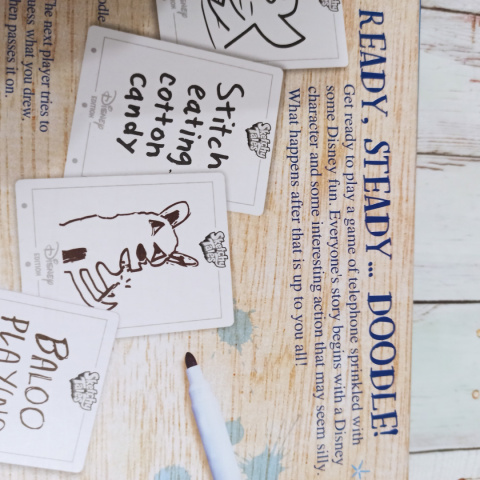 READY, STEADY... DOODLE!
Get ready to play a game of telephone sprinkled with
some Disney fun. Everyone's story begins with a Disney
character and some interesting action that may seem silly.
What happens after that is up to you all!
Sketchy
Stitch
eating
cotton
candy
Disney
EDITION
Sketchy
Disney
EDITION
Sketchy
BALOO
The next player tries to
what you drew.
then passes it on.